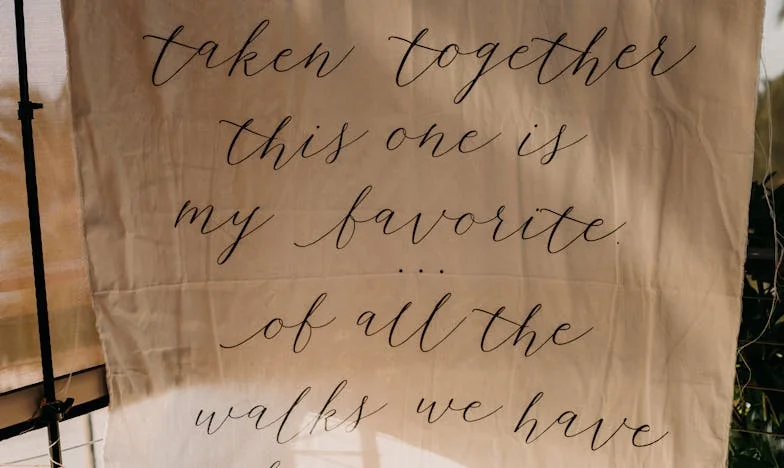 taken together
this one is
my favorite.
...
of all the
walks we have